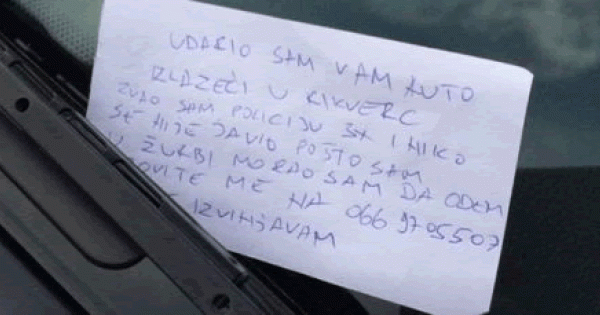 UDARIO SAM VAM AUTO
IZLAZEĆI U RIKVERC
ZVAO SAM POLICIJU I NIKO
SE NIJE JAVIO POŠTO SAM
U ŽURBI MORAO SAM DA ODEM
OVITE ME NA 066 9705507
IZVINJAVAM